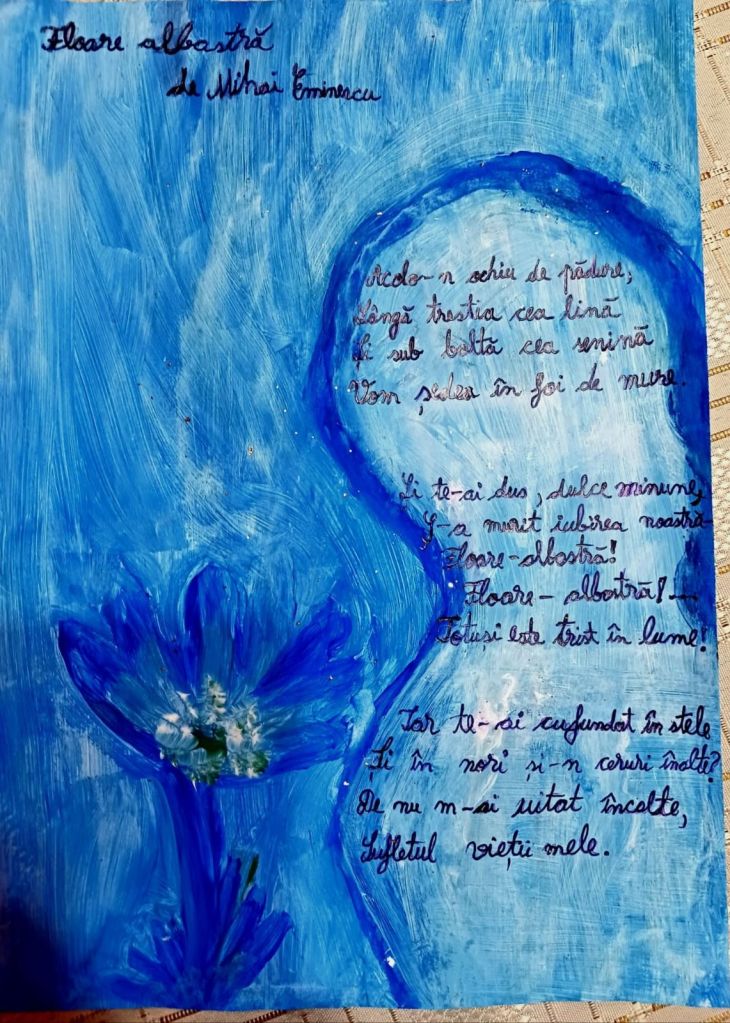 Floare albastră
de Mihai Eminescu
Acolo-n ochiu de pădure,
Lângă trestia cea lină
Și sub boltă cea senină
Vom ședea în foi de mure.
Și te-ai dus, dulce minune,
Ș-a murit iubirea noastră-
Floare-albastră!
Floare-albastră!-
Totuși este trist în lume!
Iar te-ai cufundat în stele
Și în nori și-n ceruri înalte?
De nu m-ai uitat încalte,
Sufletul vieții mele.